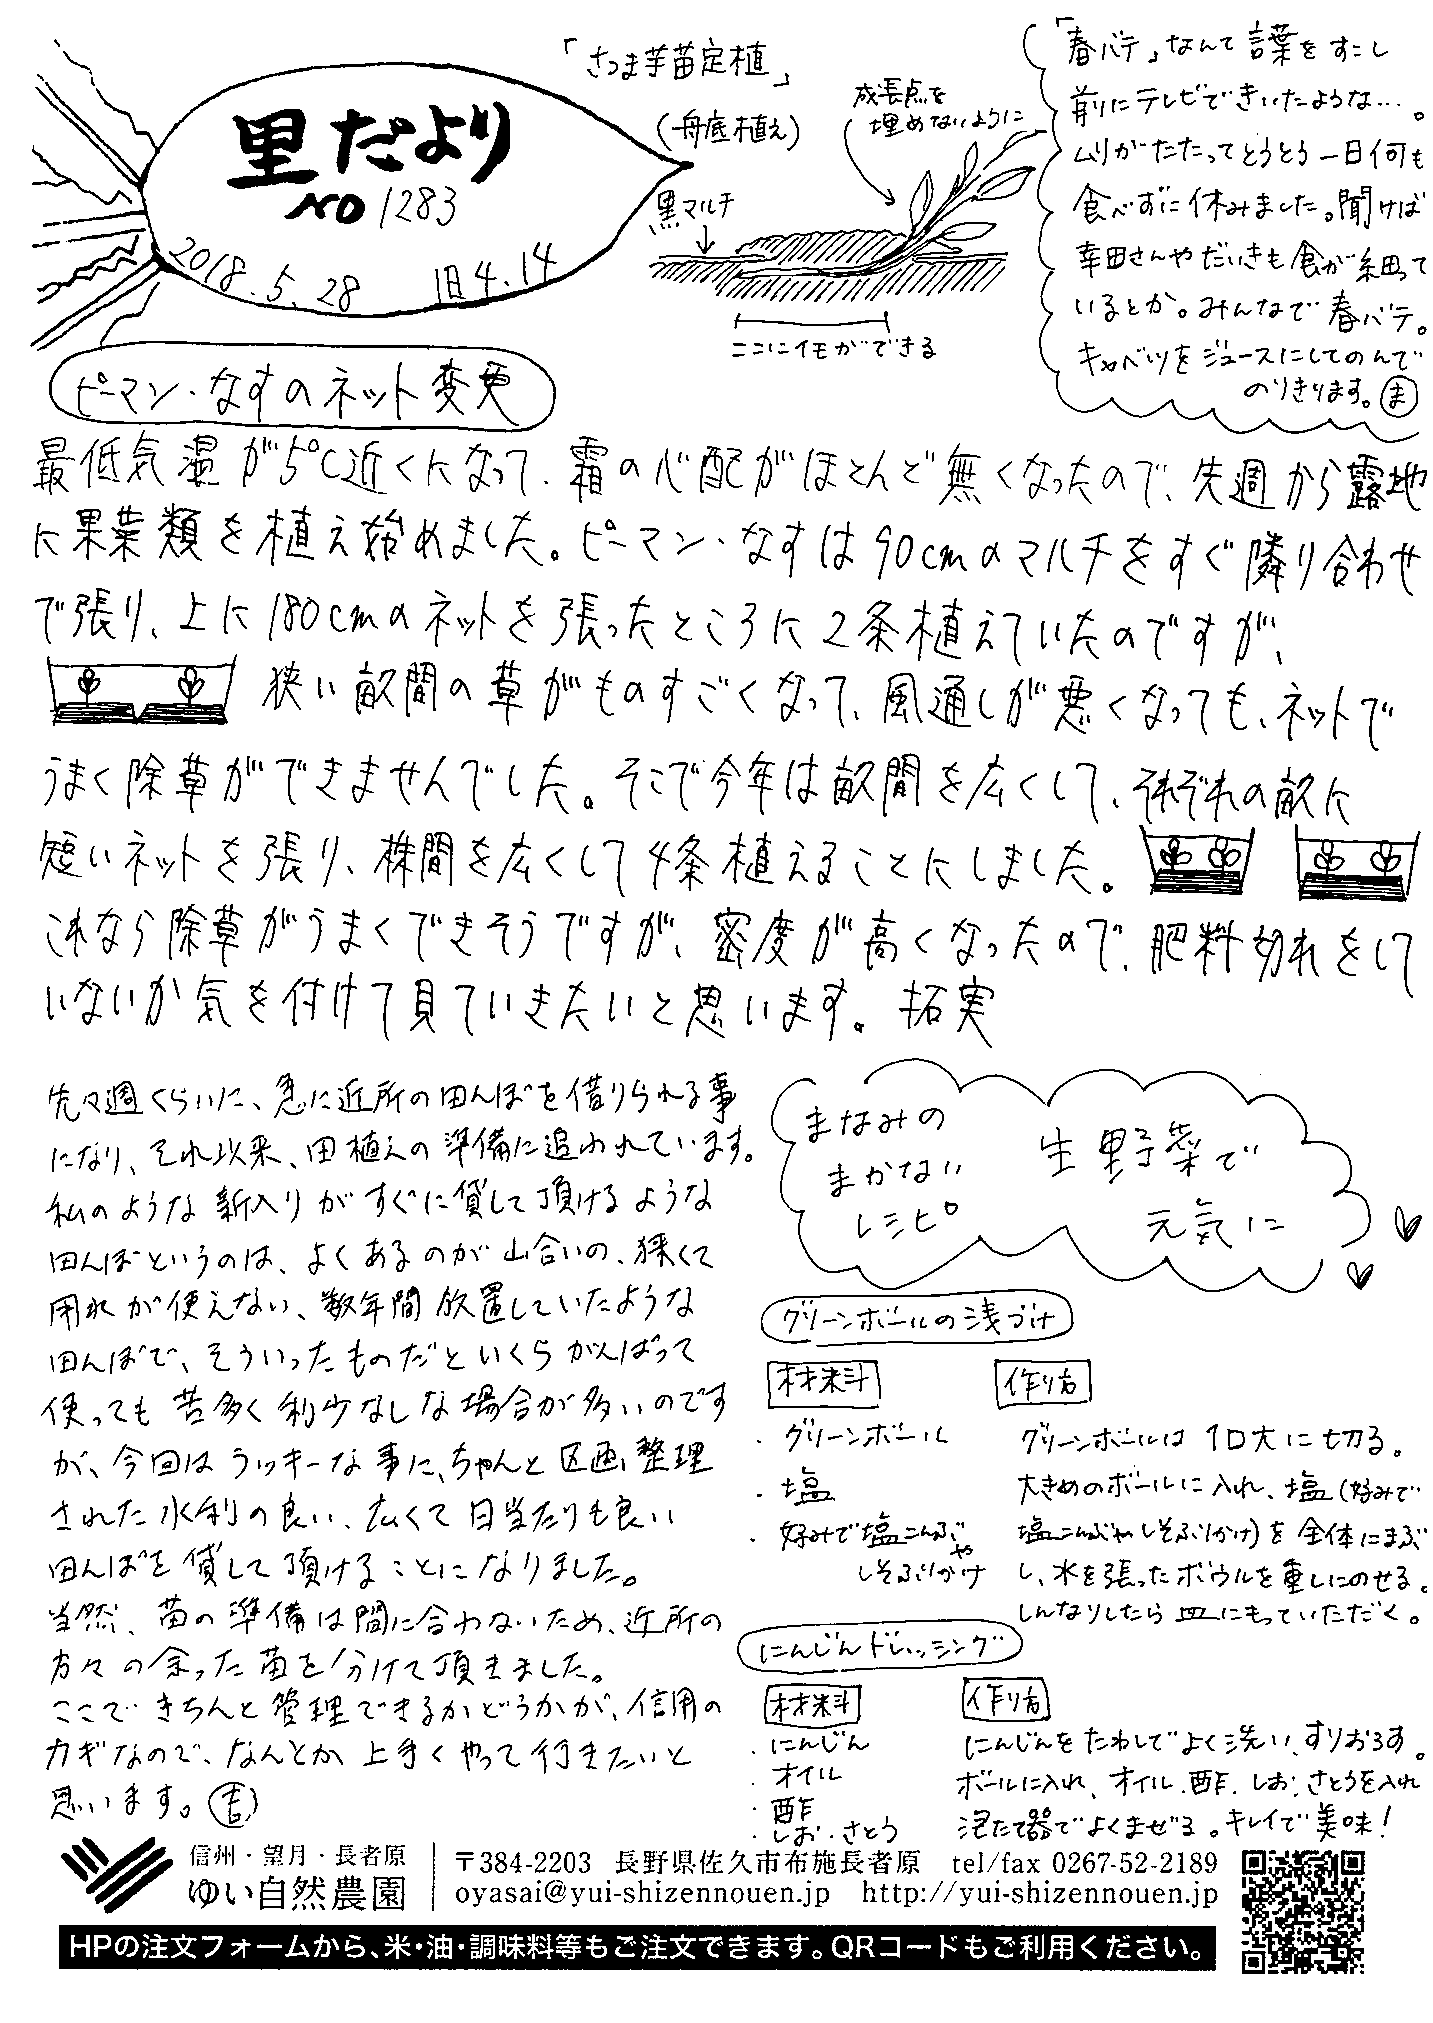 里だより
NO 1283
2018.5.28 旧4.14
「さつま芋苗定植」
(舟底植え)
成長点を
埋めないように
黒マルチ
ここにイモができる
「春バテ」なんて言葉をすこし
前にテレビできいたような…。
ムリがたたってとうとう一日何も
食べずに休みました。聞けば
幸田さんやだいきも食が細って
いるとか。みんなで春バテ。
キャベツをジュースにしてのんで
のりきります。ま
ピーマン・なすのネット変更
最低気温が5℃近くになって、霜の心配がほとんど無くなったので、先週から露地
に果菜類を植え始めました。ピーマン・なすは90cmのマルチをすぐ隣り合わせ
で張り、上に180cmのネットを張ったところに2条植えていたのですが、
狭い畝間の草がものすごくなって、風通しが悪くなっても、ネットで
うまく除草ができませんでした。そこで今年は畝間を広くして、それぞれの畝に
短いネットを張り、株間を広くして4条植えることにしました。
これなら除草がうまくできそうですが、密度が高くなったので、肥料切れをして
いないか気を付けて見ていきたいと思います。拓実
先々週くらいに、急に近所の田んぼを借りられる事
になり、それ以来、田植えの準備に追われています。
私のような新入りがすぐに貸して頂けるような
田んぼというのは、よくあるのが山合いの、狭くて
用水が使えない、数年間放置していたような
田んぼで、そういったものだといくらがんばって
使っても苦多く利少なしな場合が多いのです
が、今回はラッキーな事に、ちゃんと区画整理
された水利の良い、広くて日当たりも良い
田んぼを貸して頂けることになりました。
当然、苗の準備は間に合わないため、近所の
方々の余った苗を分けて頂きました。
ここできちんと管理できるかどうかが、信用の
カギなので、なんとか上手くやって行きたいと
思います。吉
まなみの
まかない
レシピ
生野菜で
元気に
グリーンボールの浅づけ
材料
・グリーンボール
・塩
・好みで塩こんぶ
や
しそふりかけ
作り方
グリーンボールは1口大に切る。
大きめのボールに入れ、塩(好みで
塩こんぶやしそふりかけ)を全体にまぶ
し、水を張ったボウルを重しにのせる。
しんなりしたら皿にもっていただく。
にんじんドレッシング
材料
・にんじん
・オイル
・酢
・しお・さとう
作り方
にんじんをたわしでよく洗い、すりおろす。
ボールに入れ、オイル、酢、しお、さとうを入れ
泡たて器でよくまぜる。キレイで美味!
信州・望月・長者原
ゆい自然農園
〒384-2203 長野県佐久市布施長者原 tel/fax 0267-52-2189
oyasai@yui-shizennouen.jp http://yui-shizennouen.jp
HPの注文フォームから、米・油・調味料等もご注文できます。QRコードもご利用ください。